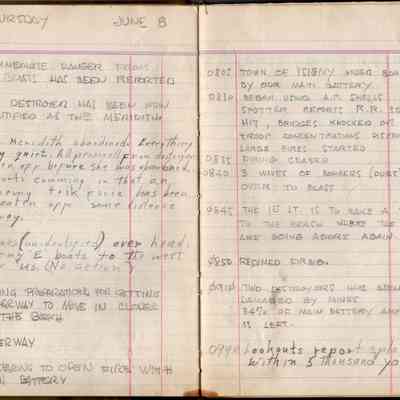 URSDAY JUNE 8
MMEDIATE DANGER FROM
BOATS HAS BEEN REPORTED
DESTROYER HAS BEEN NOW
NTIFIED AS THE MERIDITH
Meredith abandoned. Everything
quiet. All personnel from destroyer
opp before she was abandoned.
orts comming in that an
enemy task force has been
eaten opp some distance
way.
over head.
my E boats to the west
us. (No action)
ING PREPARATIONS FOR GETTING
ERWAY TO MOVE IN CLOSER
THE BEACH
ERWAY
PARING TO OPEN FIRE WITH
N BATTERY
0805 TOWN OF ISIGNY UNDER
BY OUR MAIN BATTERY.
0830 BEGAN USING A.P. SHELLS
SPOTTER REPORTS R.R.
HIT, BRIDGES KNOCKED
TROOP CONCENTRATIONS
LARGE FIRES STARTED
0835 FIRING CEASED
0840 3 WAVES OF BOMBERS (OURS)
OVER TO BLAST
0845 THE 1ST LT. IS TO TAKE A
TO THE BEACH WHERE THE
ARE GOING ASHORE AGAIN
0850 RESUMED FIRING.
0910 TWO DESTROYERS HAS
DAMAGED BY MINES
34% OF MAIN BATTERY
IS LEFT.
Lookouts report
within 5 thousand